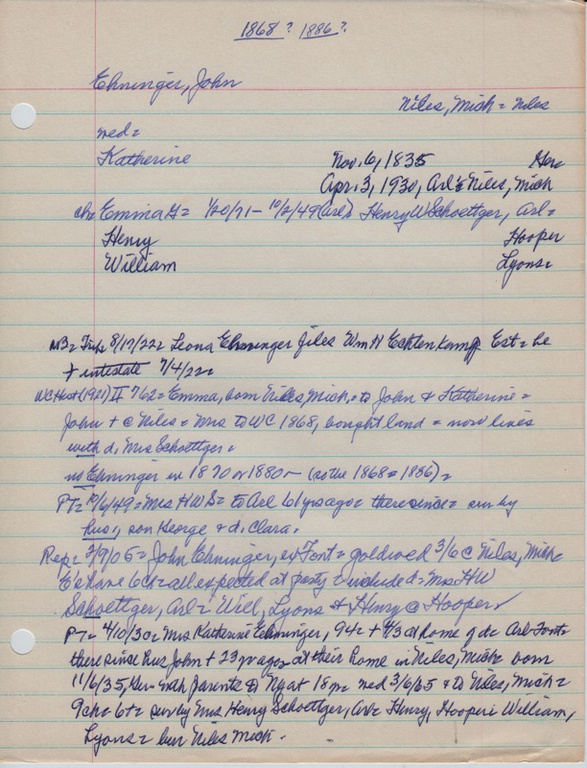 1868? 1886?
Ehninger, John
Niles, Mich = Niles
med =
Katherine Nov. 6, 1835 Ger=
Apr. 3, 1930, Arl = Niles, Mich
chr Emma H = 1/20/71 - 10/2/49 (Arl) Henry W Schoettger, Arl =
Henry Hooper
William Lyons =
NB = Trib 8/17/22 = Leona Ehninger files Wm H Echtenkamp Est = he
+ intestate 7/4/22 =
WC Hist (1921) II 762 = Emma, born Niles, Mich. = to John & Katherine =
John + @ Niles = Mrs to WC 1868, bought land = now lives
with d, Mrs Schoettger =
no Ehninger in 1870 or 1880 - (so the 1868 = 1886) =
PT = 10/6/49 = Mrs H W S = to Arl 61 yrs ago = there since = sur by
hus, son George & d. Clara.
Rep = 3/9/05 = John Ehninger, ex Font = gold wed 3/6 @ Niles, Mich =
E's have 6 ch = all expected at party = include d = Mrs HW
Schoettger, Arl = Will, Lyons & Henry @ Hooper
PT = 4/10/30 = Mrs Katherine Ehninger, 94 = + 4/3 at home of d = Arl-Font =
there since hus John + 23 yrs ago at their home in Niles, Mich = born
11/6/35, Ger = with parents to NY at 18 = med 3/6/55 & to Niles, Mich =
9 ch = 6 + = sur by Mrs Henry Schoettger, Arl = Henry, Hooper; William,
Lyons = bur Niles Mich.